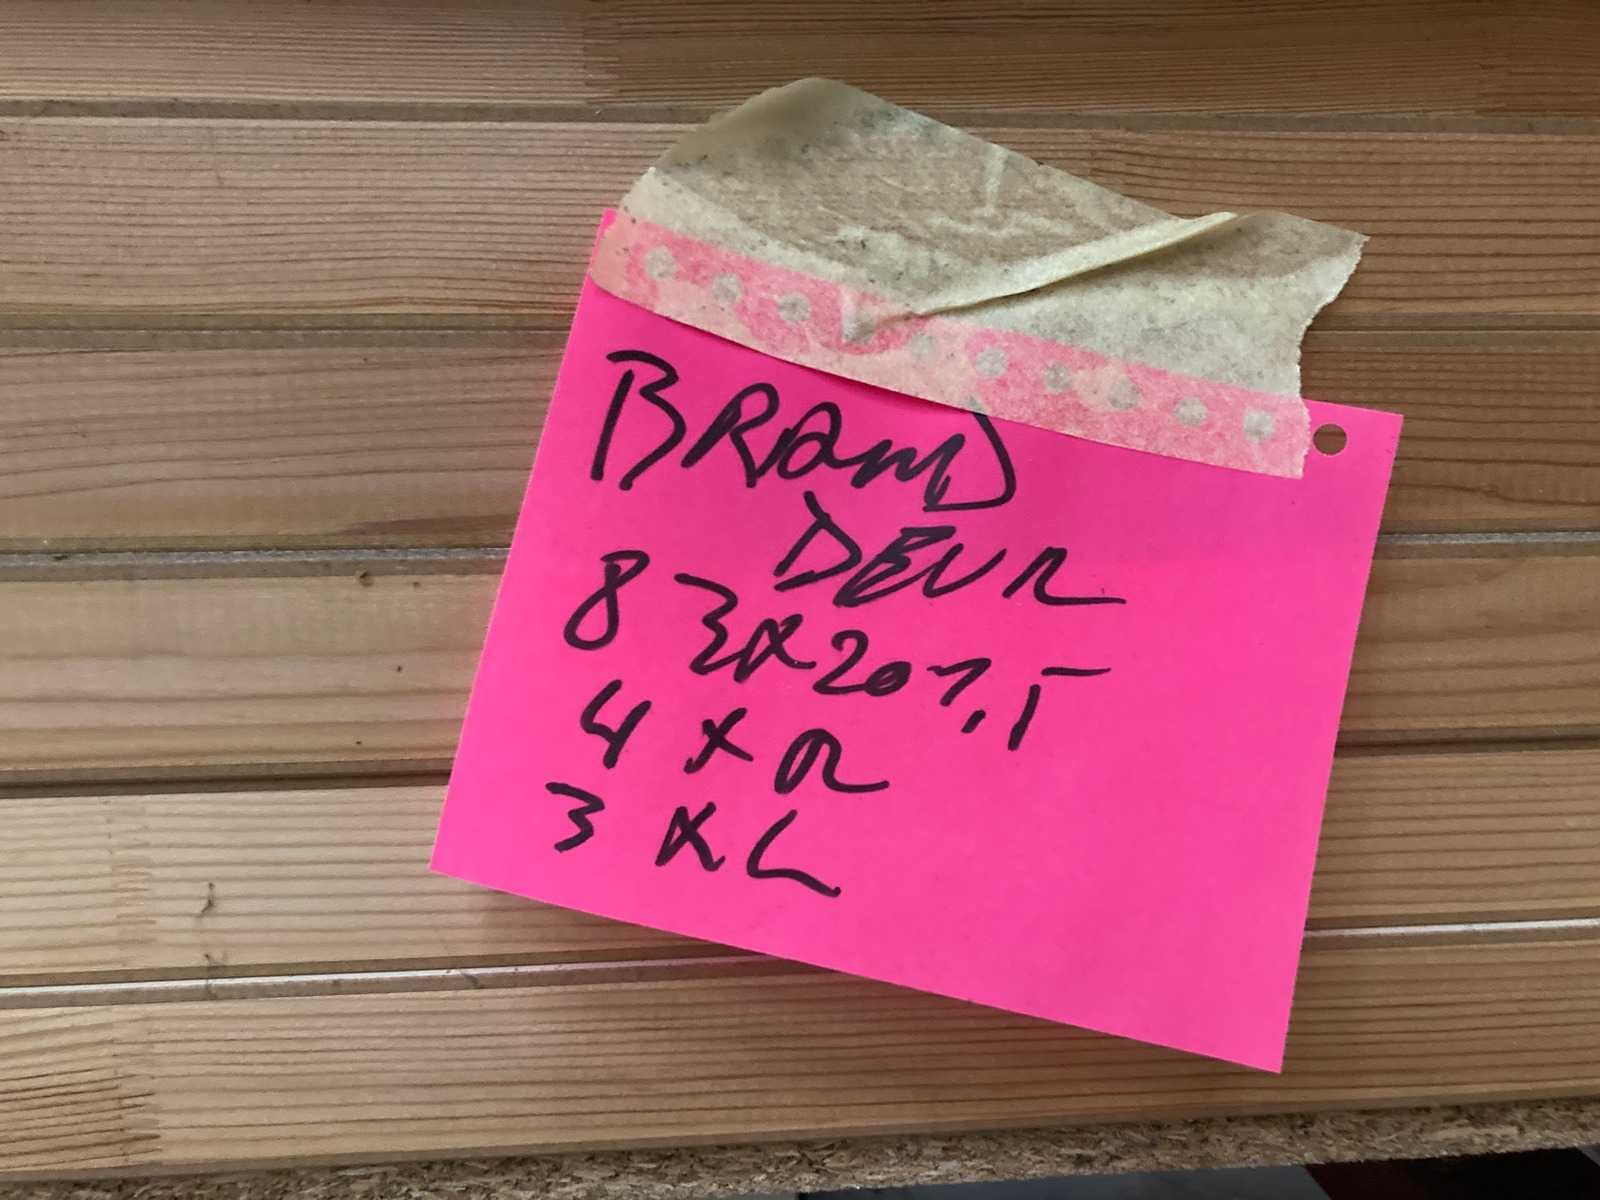 BRAND
DEUR
83x201,5
4 x R
3 x L